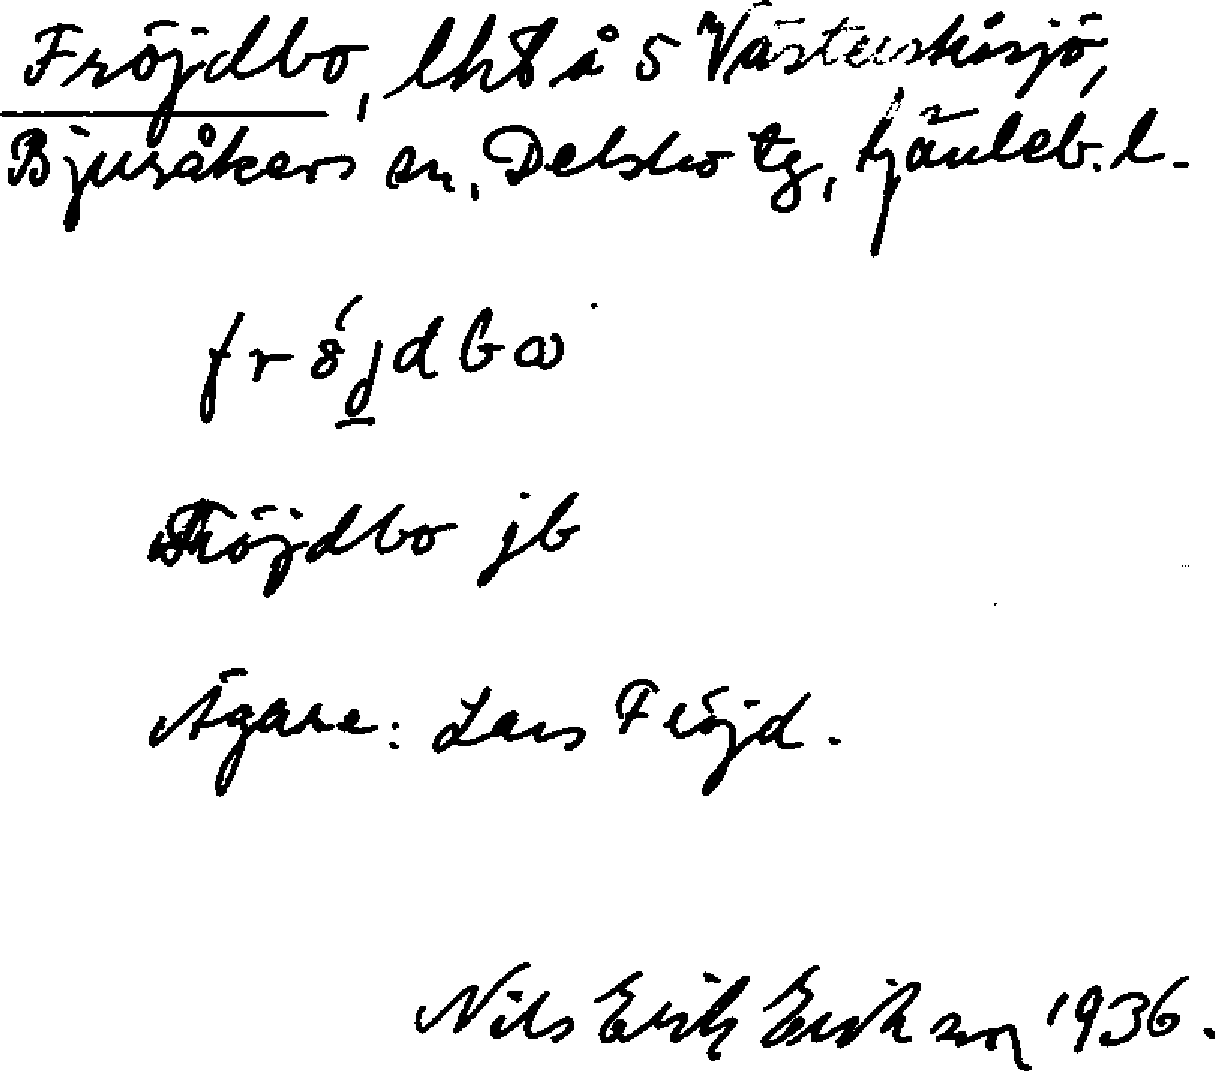 Fröjdbo, lht å 5 Västerskåsjö,
Bjuråkers sn, Delsbo tg, Gävleb. l.
fröjdbω
Fröjdbo jb
Ägare: Lars Fröjd.
Nils Erik Erikson 1936.